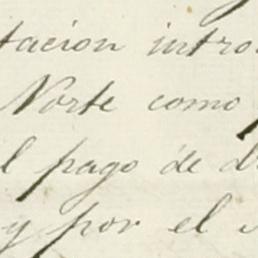 tacion intro
Norte como
l pago de d
y por el